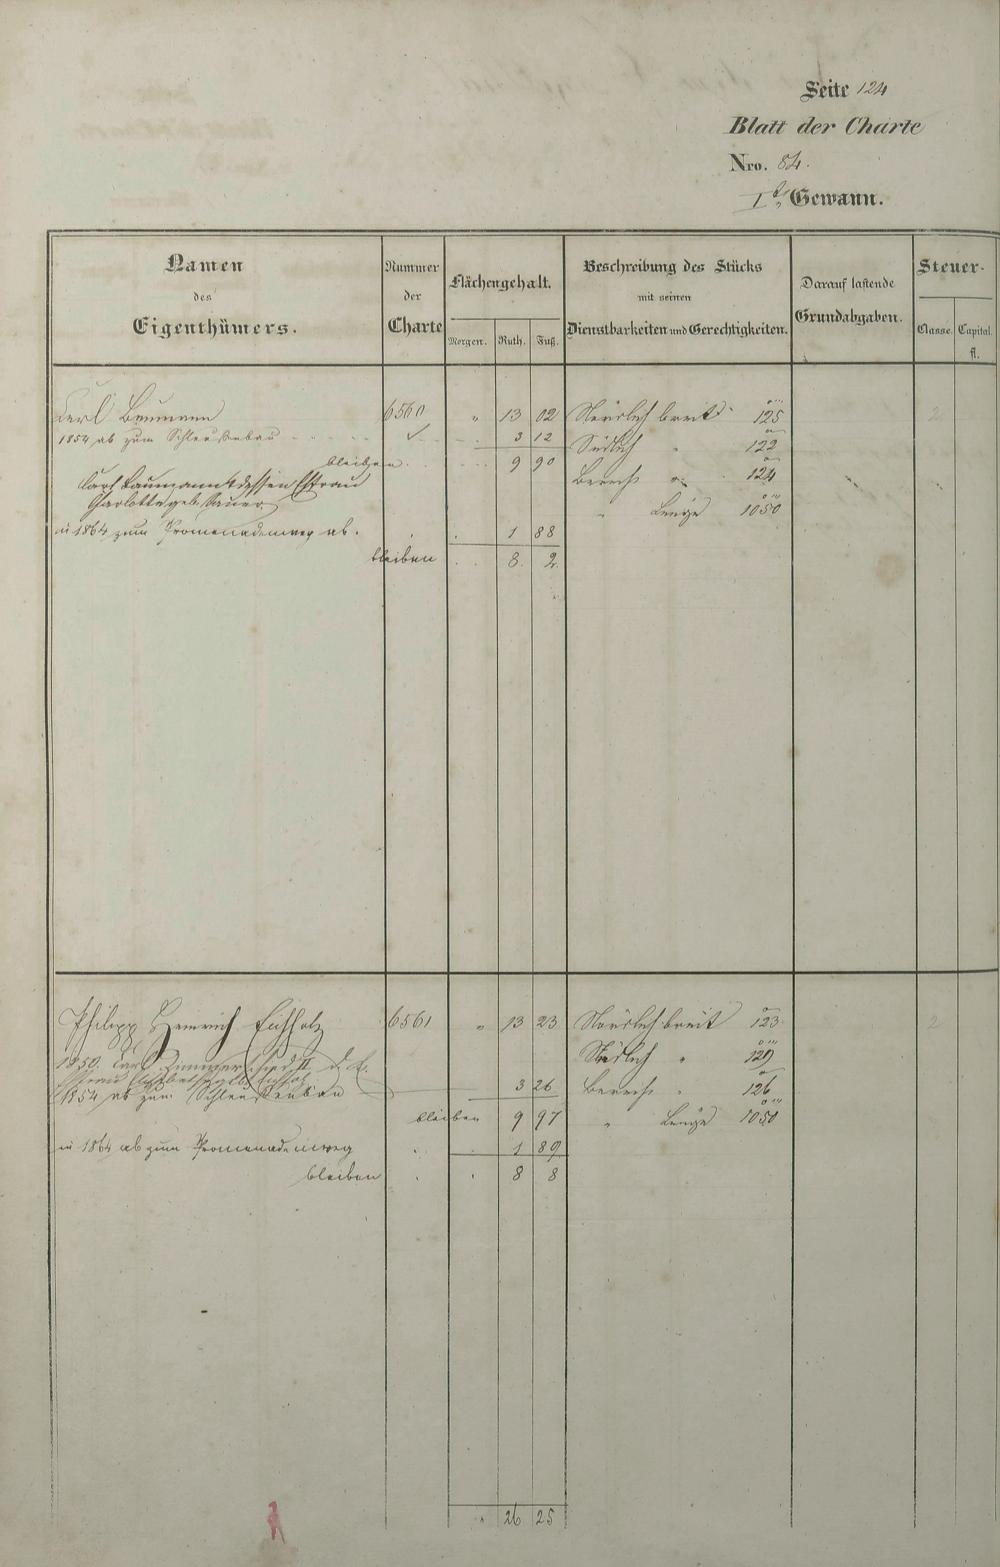 Seite 124
Blatt der Charte
Nro. 84.
I.te Gewann.
Namen des Eigenthümers.
Nummer der Charte
Flächengehalt.
Morgen. Ruth. Fuß.
Beschreibung des Stücks mit seinen Dienstbarkeiten und Gerechtigkeiten.
Darauf lastende Grundabgaben.
Steuer-
Classe. Capital. fl.
Carl Baumann 6560 " 13 02 Nördlich breit 125 2
1854 ab zum Schleußenbau 3 12 Südlich " 122
bleiben 9 90 " 124
Carl Baumann & dessen Ehefrau
Charlotte geb. Sauer " Länge 1050
in 1864 zum Promenadenweg ab. 1 88
bleiben 8. 2.
Philipp Heinrich Eichholz 6561 " 13 23 Nördlich breit 123 2
1859. Carl d. E. Südlich " 129
Ehefrau
1854 ab zum Schleußenbau 3 26 " 126
bleiben 9 97 " Länge 1050
in 1864 ab zum Promenadenweg 1 89
bleiben 8 8
" 26 25